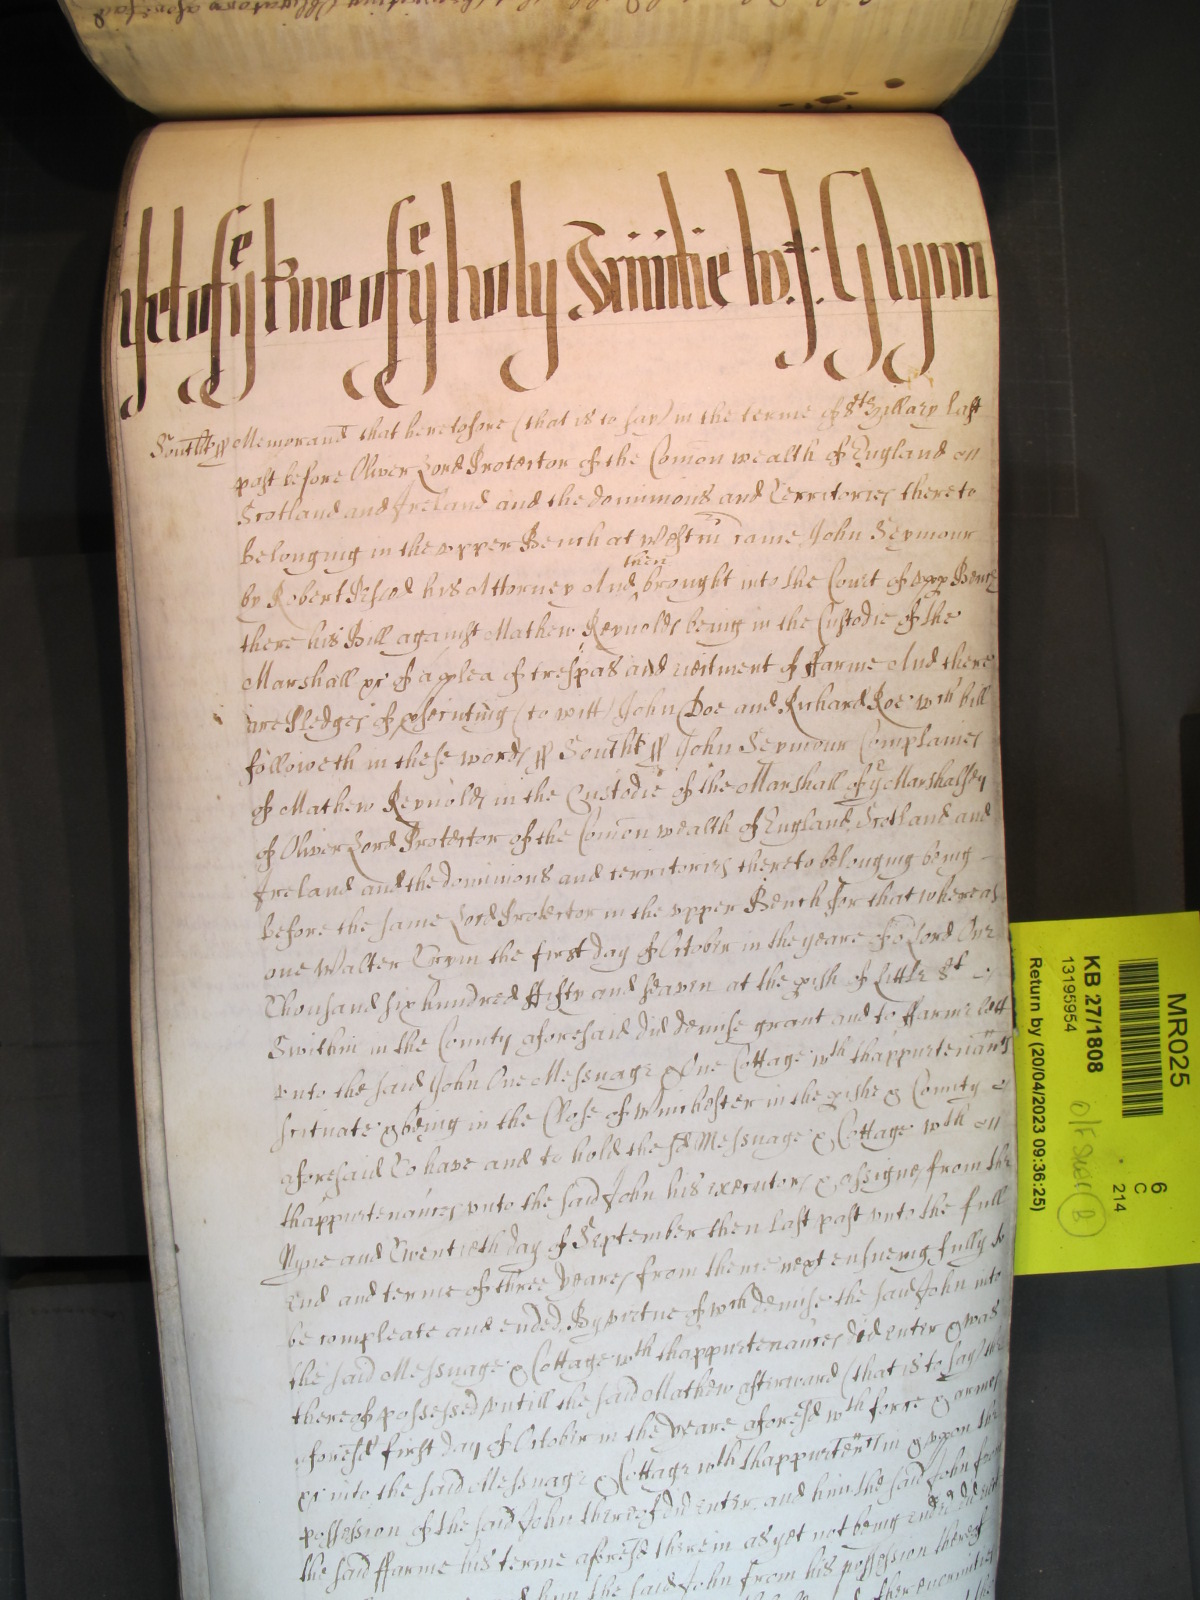 yet of ye tme of ye holy Trinitie by J: Glynn
Southt ss Memorand that heretofore (that is to say) in the terme of St Hillary last
past before Oliver Lord Protector of the Comon wealth of England
Scotland and Ireland and the dominions and Territories thereto
belonging in the upper Bench at Westm came John Seymour
by Robert his Attorney And then brought into the Court of upp Bench
there his Bill against Mathew Reynolds being in the Custodie of the
Marshall &c of a plea of trespas and eiectment of ffarme And there
are Pledges of psecuting (to witt) John Doe and Richard Roe wch bill
followeth in these words ss Southt ss John Seymour Complaines
of Mathew Reynolds in the Custodie of the Marshall of ye Marshalsey
of Oliver Lord Protector of the Comon wealth of England Scotland and
Ireland and the dominions and territories thereto belonging being
before the same Lord Protector in the upper Bench for that whereas
one Walter the first day of October in the yeare of or Lord One
Thousand six hundred ffifty and seaven at the pish of Little St
Swithin in the County aforesaid did demise grant and to ffarme lett
unto the said John One Messuage & One Cottage wth thappurtenances
scituate & being in the Close of Winchester in the pishe & County
aforesaid To have and to hold the sd Messuage & Cottage wth
thappurtenances unto the said John his executors & assignes from the
Nyne and Twentieth day of September then last past unto the full
End and terme of three yeares from thence next ensueing fully to
be compleate and ended By vertue of wch demise the said John into
the said Messuage & Cottage wth thappurtenances did enter & was
thereof possessed untill the said Mathew afterward (that is to say) the
aforesd first day of October in the yeare aforesd wth force & armes
&c into the said Messuage & Cottage wth thappurtenes in & upon the
possession of the said John thereof did enter and him the said John from
the said ffarme his terme aforesd therein as yet not being ended did
him the said John from his possession thereof
other enormities
MR025
6
C
214
KB 27/1808
13195954
Return by (20/04/2023 09:36:25)